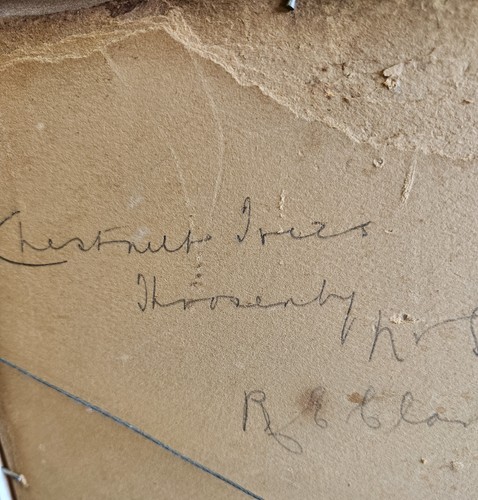 Chestnut Trees
Throsenby
R E Clar